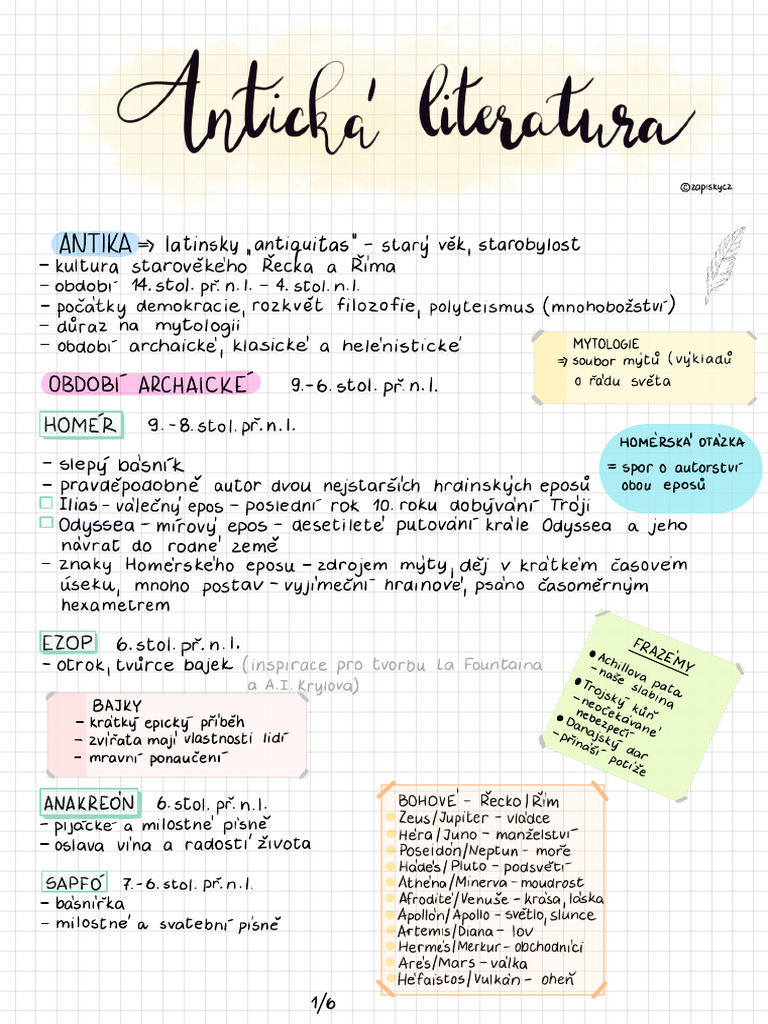 Antická literatura
©zapiskycz
ANTIKA ⇒ latinsky „antiquitas" – starý věk, starobylost
– kultura starověkého Řecka a Říma
– období 14. stol. př. n. l. – 4. stol. n. l.
– počátky demokracie, rozkvět filozofie, polyteismus (mnohobožství)
– důraz na mytologii
– období archaické, klasické a helénistické
MYTOLOGIE
⇒ soubor mýtů (výkladů
o řádu světa
OBDOBÍ ARCHAICKÉ 9.–6. stol. př. n. l.
HOMÉR 9.–8. stol. př. n. l.
HOMÉRSKÁ OTÁZKA
= spor o autorství
obou eposů
– slepý básník
– pravděpodobně autor dvou nejstarších hrdinských eposů
Ilias – válečný epos – poslední rok 10. roku dobývání Tróji
Odyssea – mírový epos – desetileté putování krále Odyssea a jeho
návrat do rodné země
– znaky Homérského eposu – zdrojem mýty, děj v krátkém časovém
úseku, mnoho postav – vyjímeční hrdinové, psáno časoměrným
hexametrem
EZOP 6. stol. př. n. l.
– otrok, tvůrce bajek (inspirace pro tvorbu La Fountaina
a A.I. Krylova)
FRAZÉMY
• Achillova pata
– naše slabina
• Trojský kůň
– neočekávané
nebezpečí
• Danajský dar
– přináší potíže
BAJKY
– krátký epický příběh
– zvířata mají vlastnosti lidí
– mravní ponaučení
ANAKREÓN 6. stol. př. n. l.
– pijácké a milostné písně
– oslava vína a radostí života
SAPFÓ 7.–6. stol. př. n. l.
– básnířka
– milostné a svatební písně
BOHOVÉ – Řecko/Řím
Zeus/Jupiter – vládce
Héra/Juno – manželství
Poseidón/Neptun – moře
Hádés/Pluto – podsvětí
Athéna/Minerva – moudrost
Afrodité/Venuše – krása, láska
Apollón/Apollo – světlo, slunce
Artemis/Diana – lov
Hermés/Merkur – obchodníci
Áres/Mars – válka
Héfaistos/Vulkán – oheň
1/6